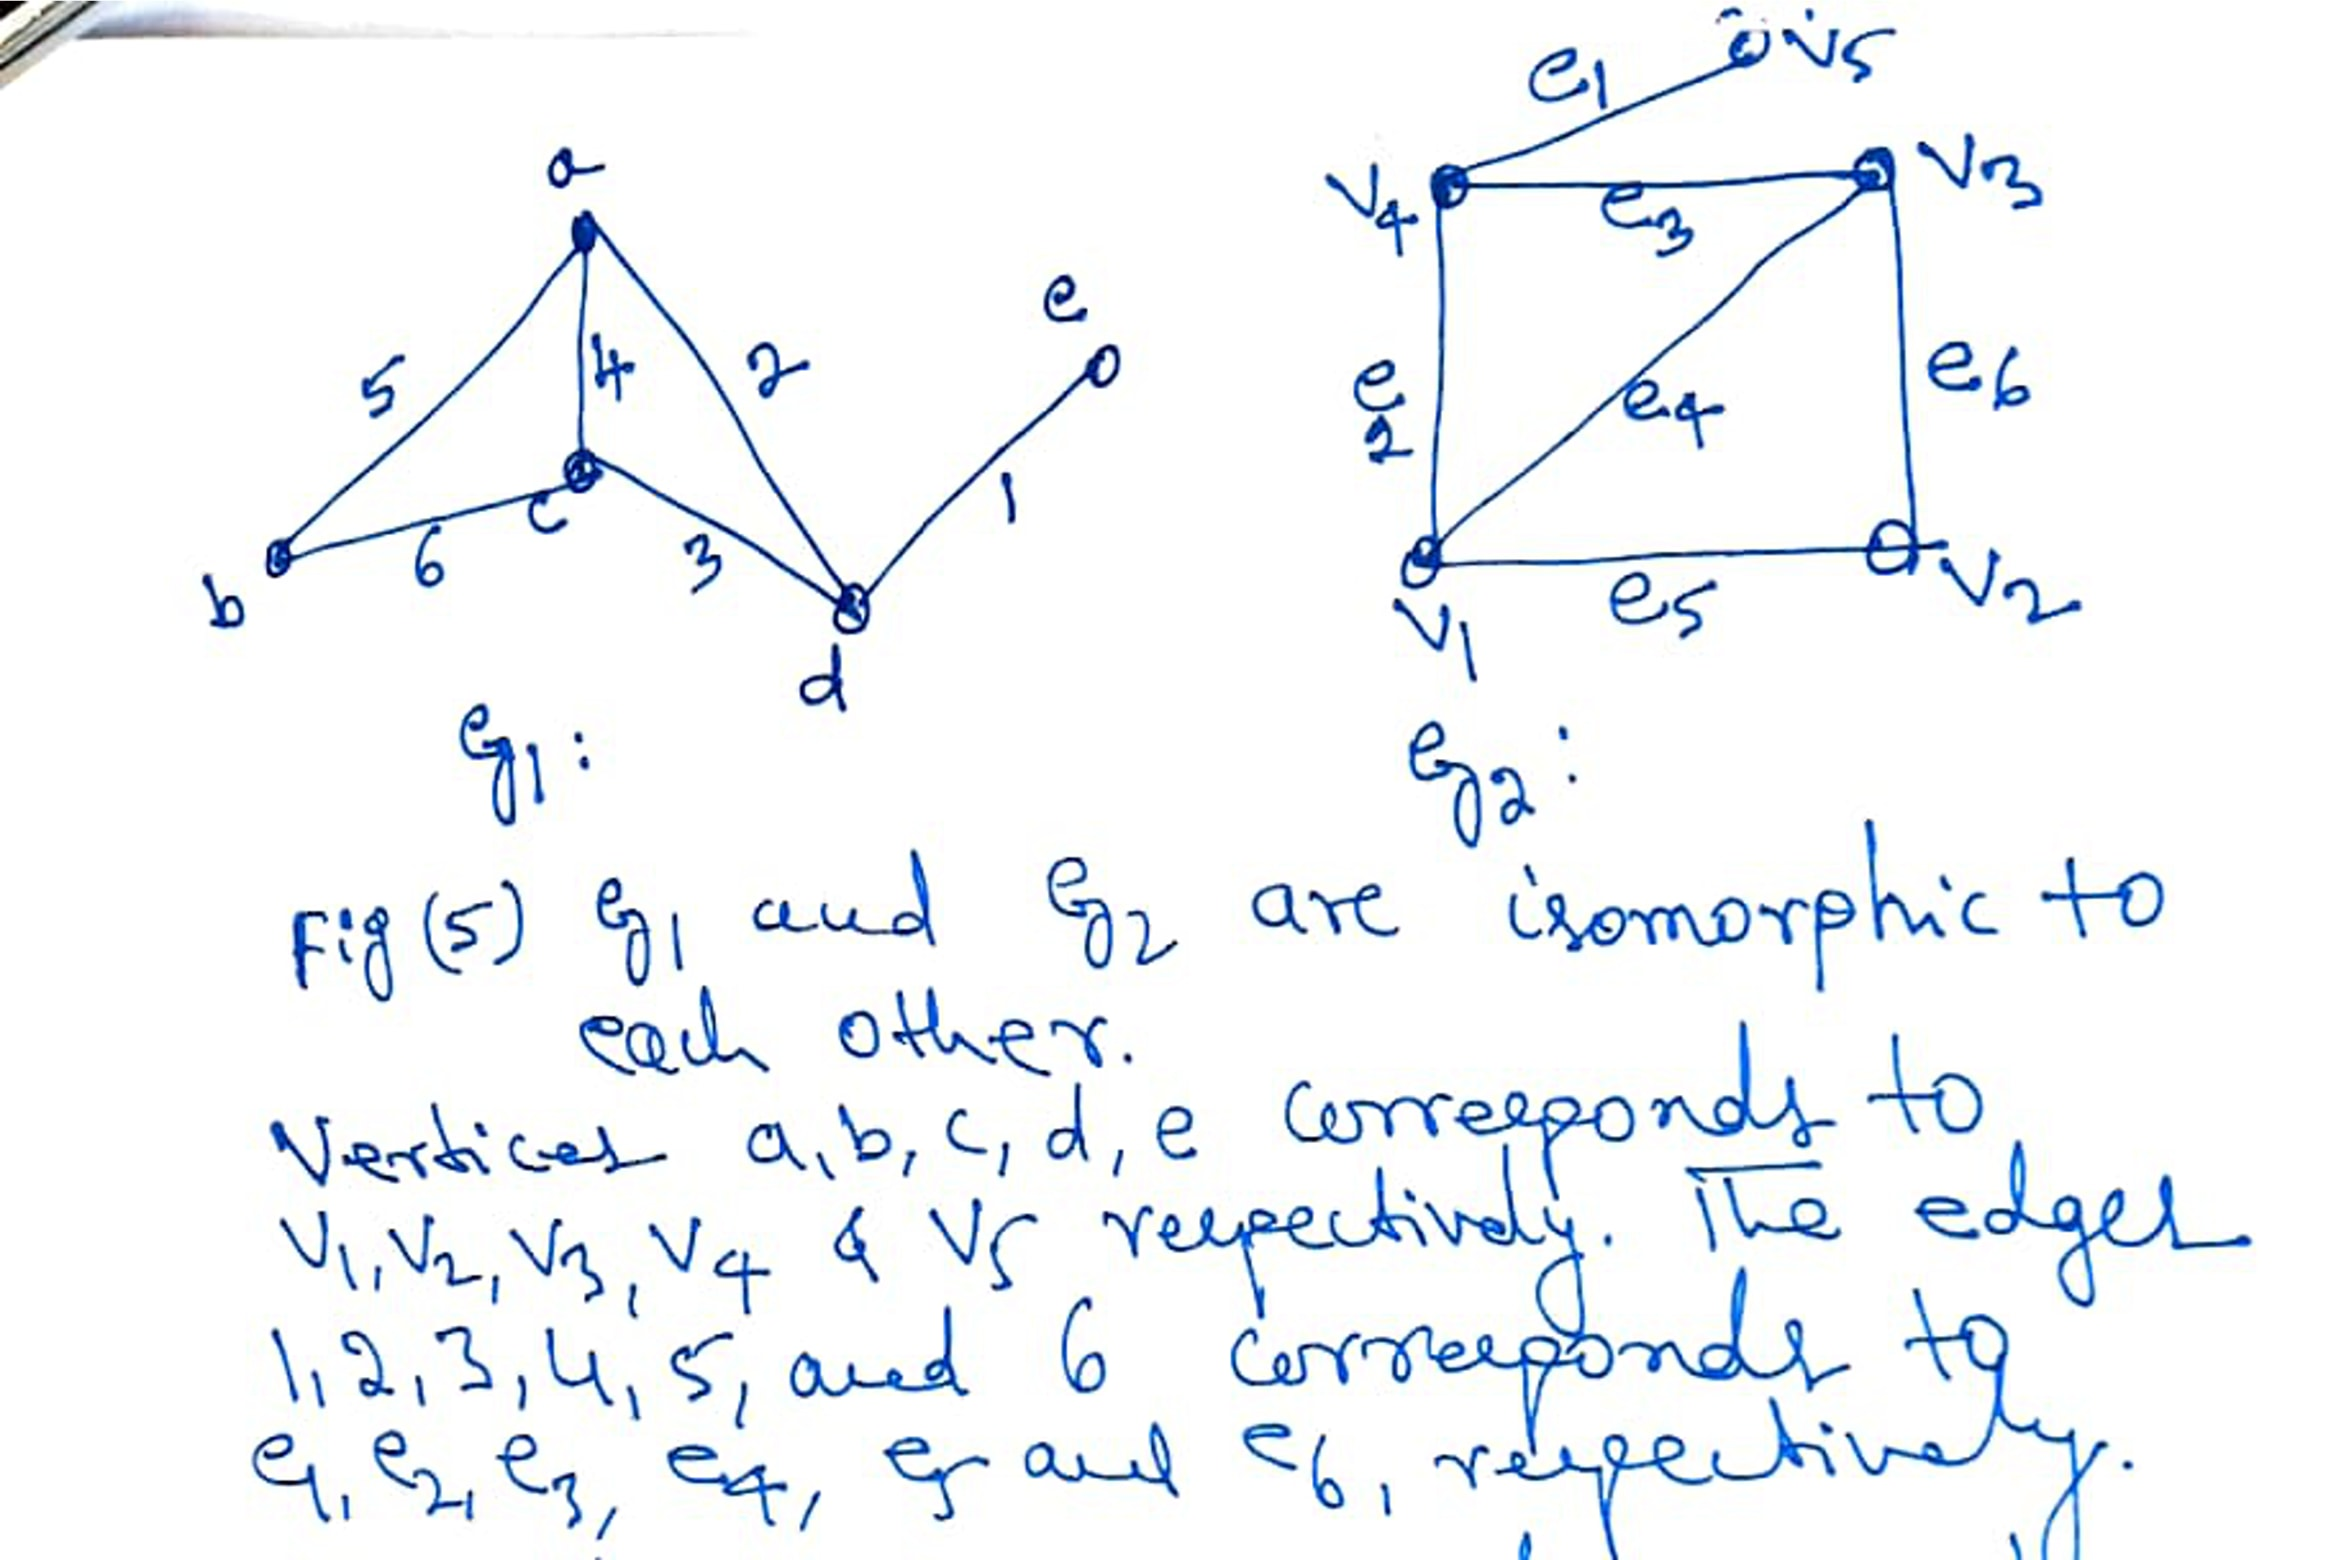 a
b
c
d
e
5
4
2
6
3
1
e1
v5
v4
e3
v3
e2
e4
e6
v1
e5
v2
G1:
G2:
Fig (5) G1 and G2 are isomorphic to
each other.
Vertices a, b, c, d, e corresponds to
V1, V2, V3, V4 & V5 respectively. The edges
1, 2, 3, 4, 5, and 6 corresponds to
e1, e2, e3, e4, e5 and e6, respectively.